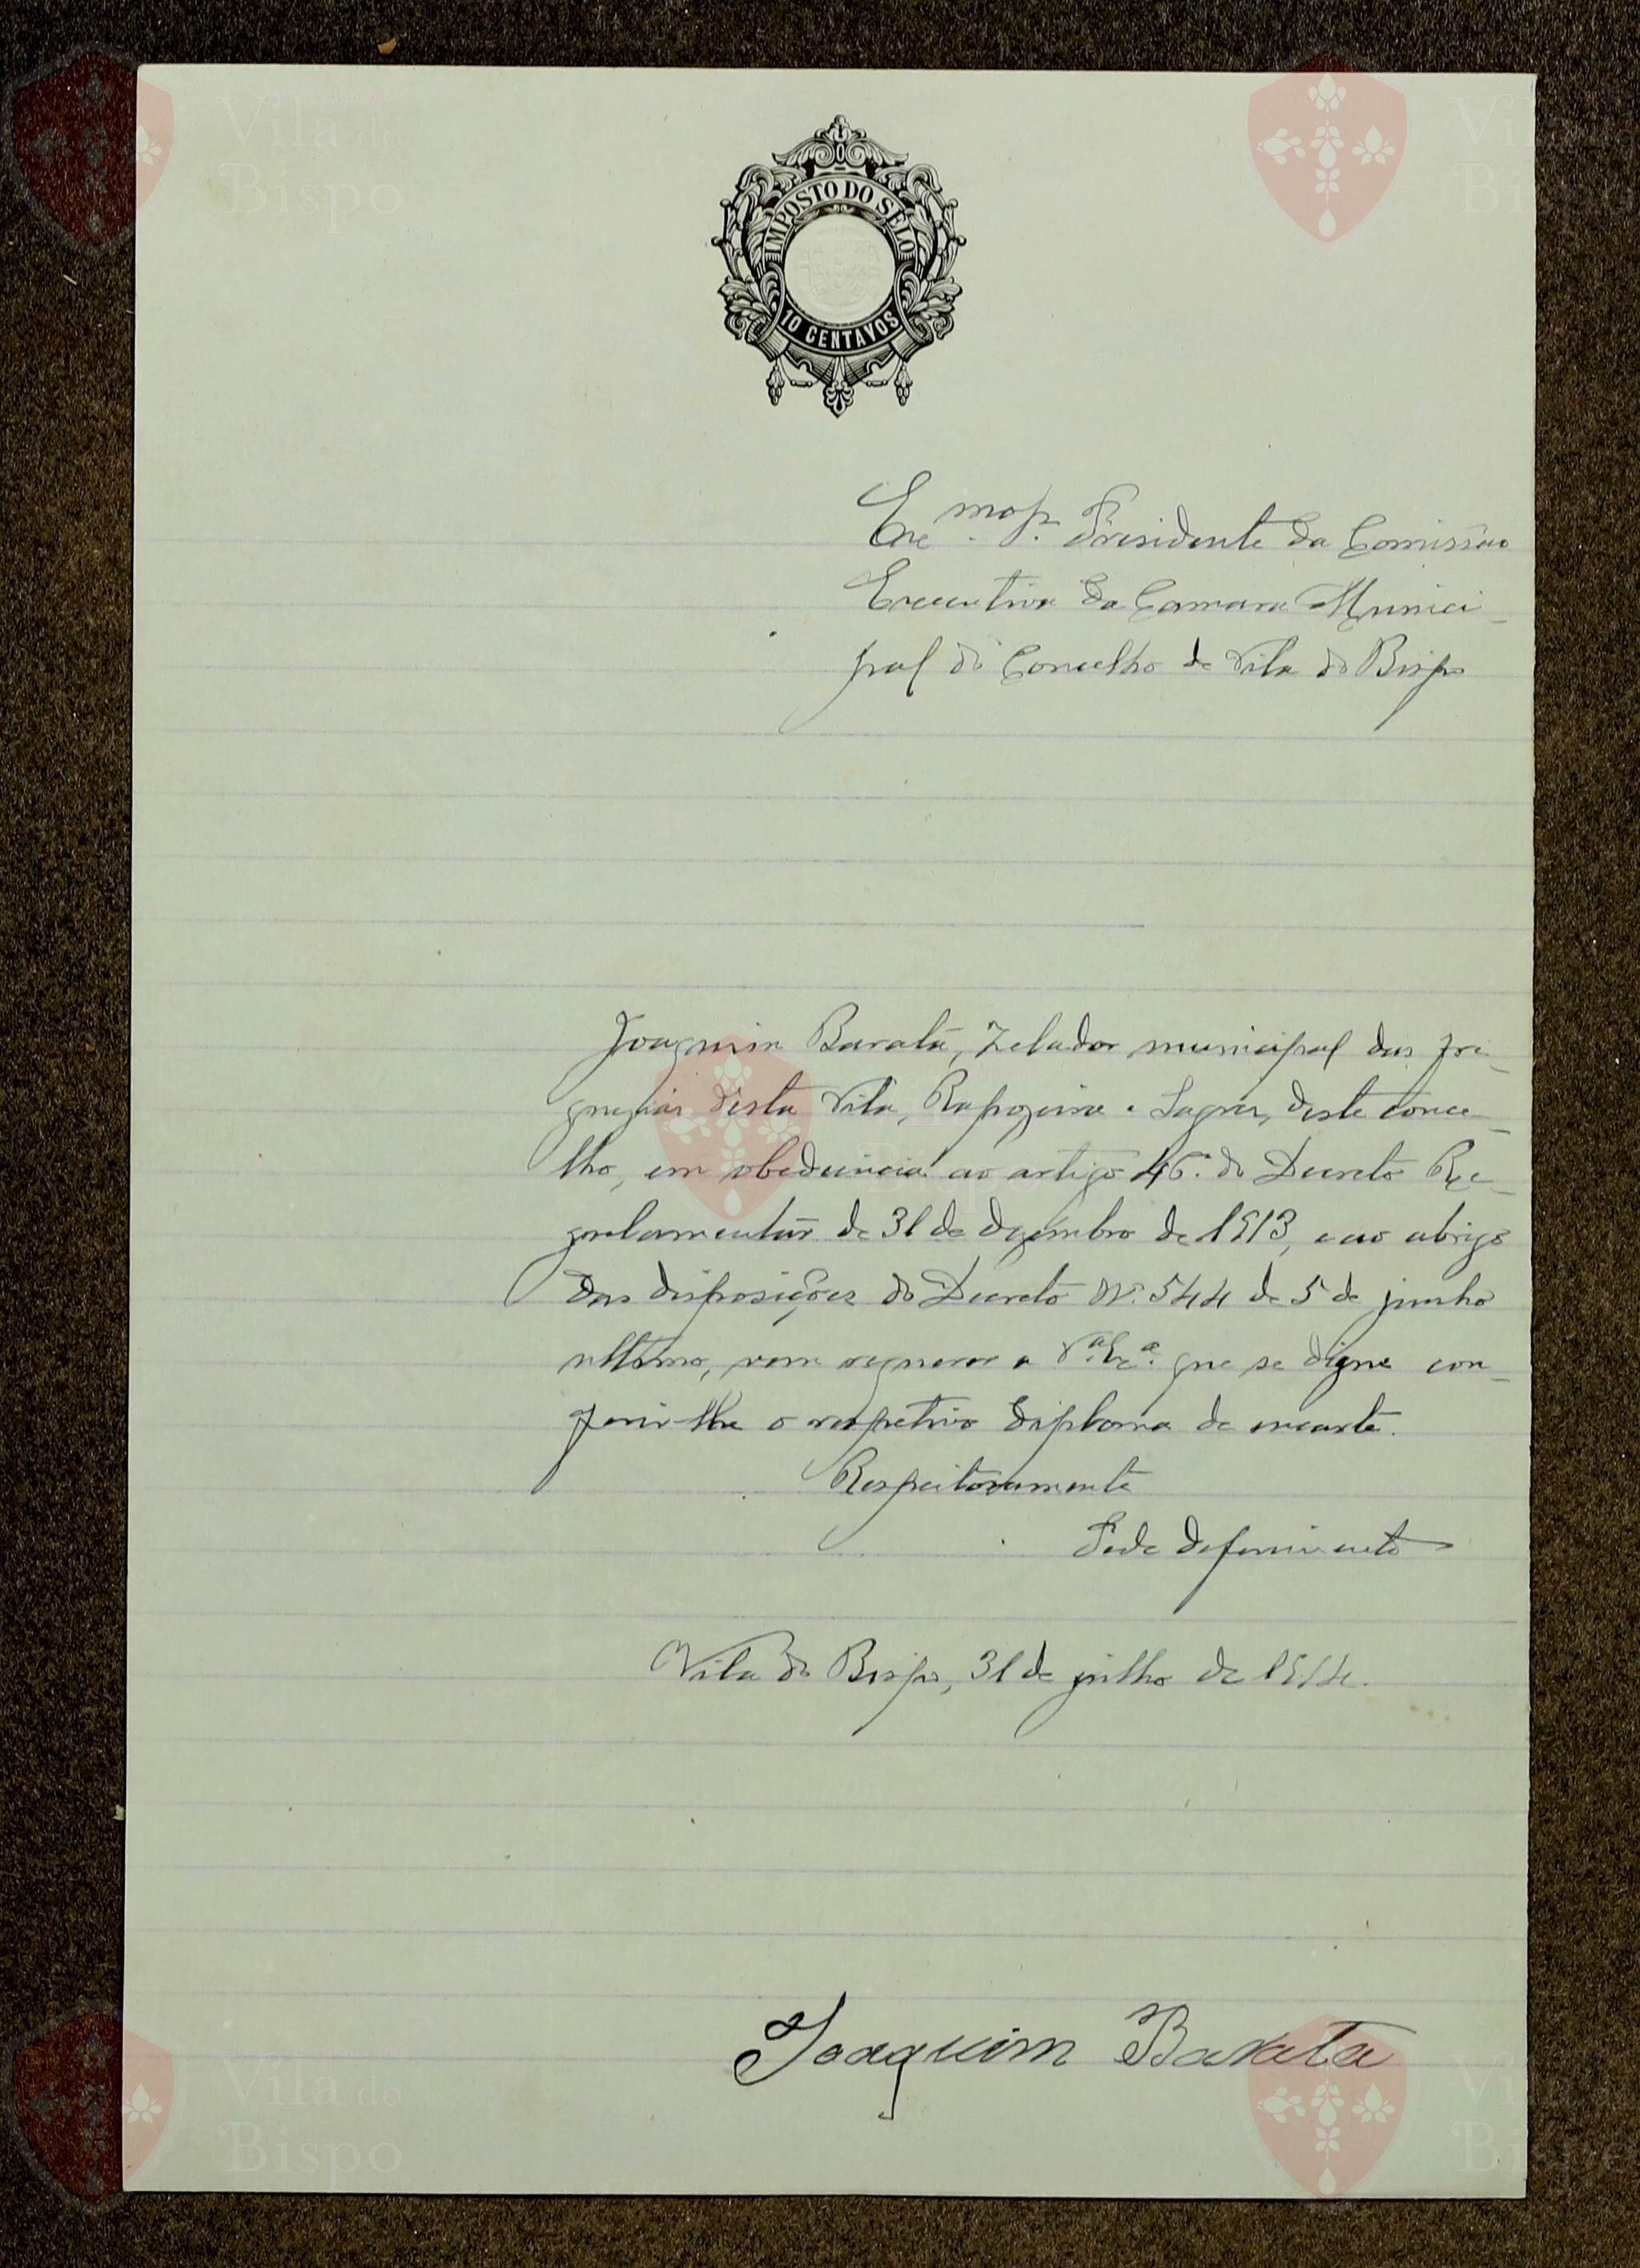 IMPOSTO DO SELO
10 CENTAVOS
Exc.mo Sr. Presidente da Comissão
Executiva da Camara Munici-
pal do Concelho de Vila do Bispo
Joaquim Barata, Zelador municipal das fre-
guezias desta Vila, Rapozeira e Sagres, deste conce-
lho, em obediencia ao artigo 46.º do Decreto Re-
gulamentar de 31 de dezembro de 1913, e ao abrigo
das disposições do Decreto N.º 544 de 5 de junho
ultimo, vem requerer a V.ª Ex.ª que se digne con-
ferir-lhe o respetivo diploma de encarte.
Respeitosamente
Pede deferimento
Vila do Bispo, 31 de julho de 1914.
Joaquim Barata
Vila do
Bispo